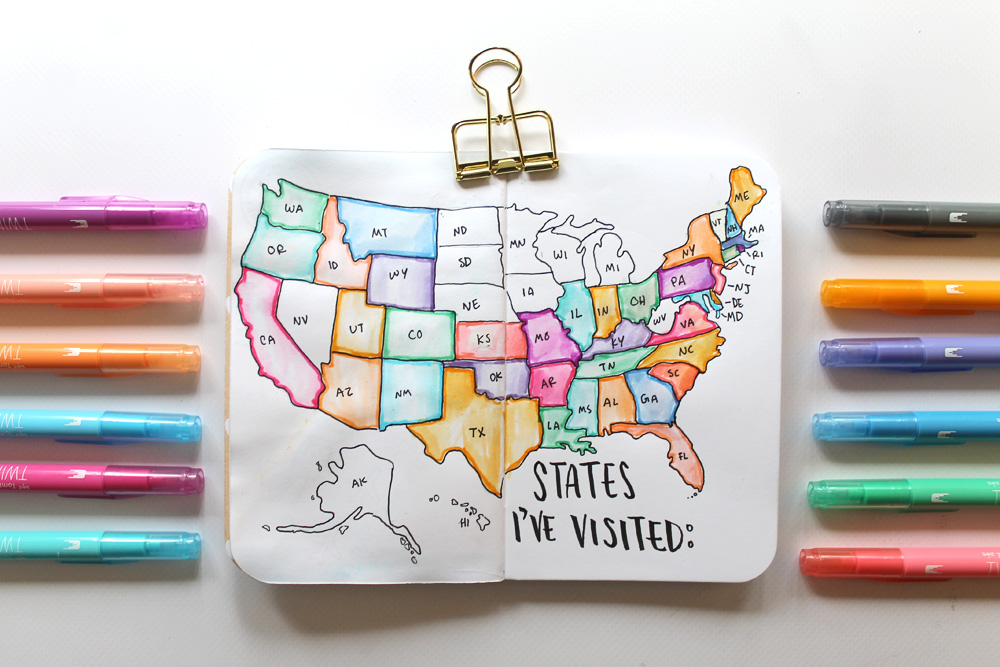 WA
OR
CA
NV
ID
MT
WY
UT
AZ
CO
NM
ND
SD
NE
KS
OK
TX
MN
IA
MO
AR
LA
WI
IL
MI
IN
OH
KY
TN
MS
AL
GA
FL
SC
NC
VA
WV
PA
NY
VT
NH
ME
MA
RI
CT
NJ
DE
MD
AK
HI
STATES
I'VE VISITED: